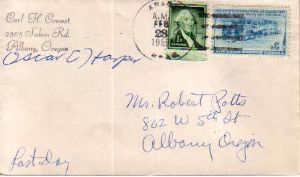 Carl H Connet
2305 Salem Rd.
Albany, Oregon
Oscar C Harper
A.M.
FEB
28
195
Mr. Robert Potts
802 W 5th St
Albany Oregon
Last Day